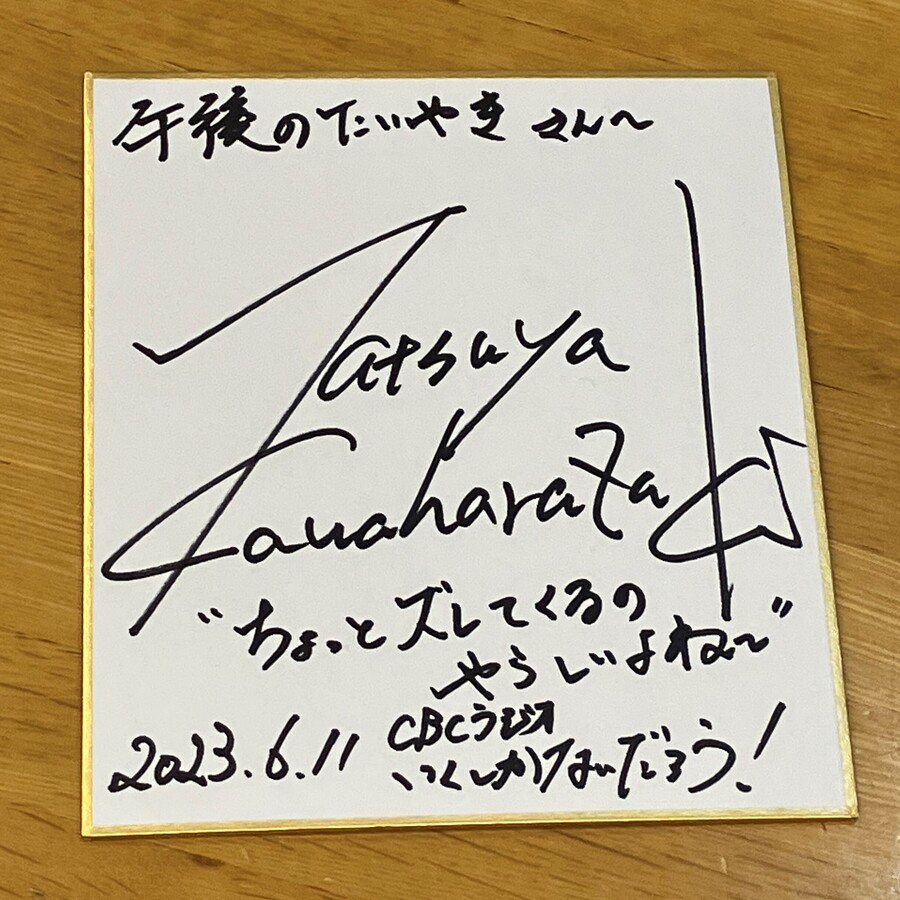 午後のたいやきさん〜
Tatsuya
Kawaharazaki
"ちょっとズレてくるの
やらしいよね〜"
2023.6.11
CBCラジオ
いくしかないだろう!